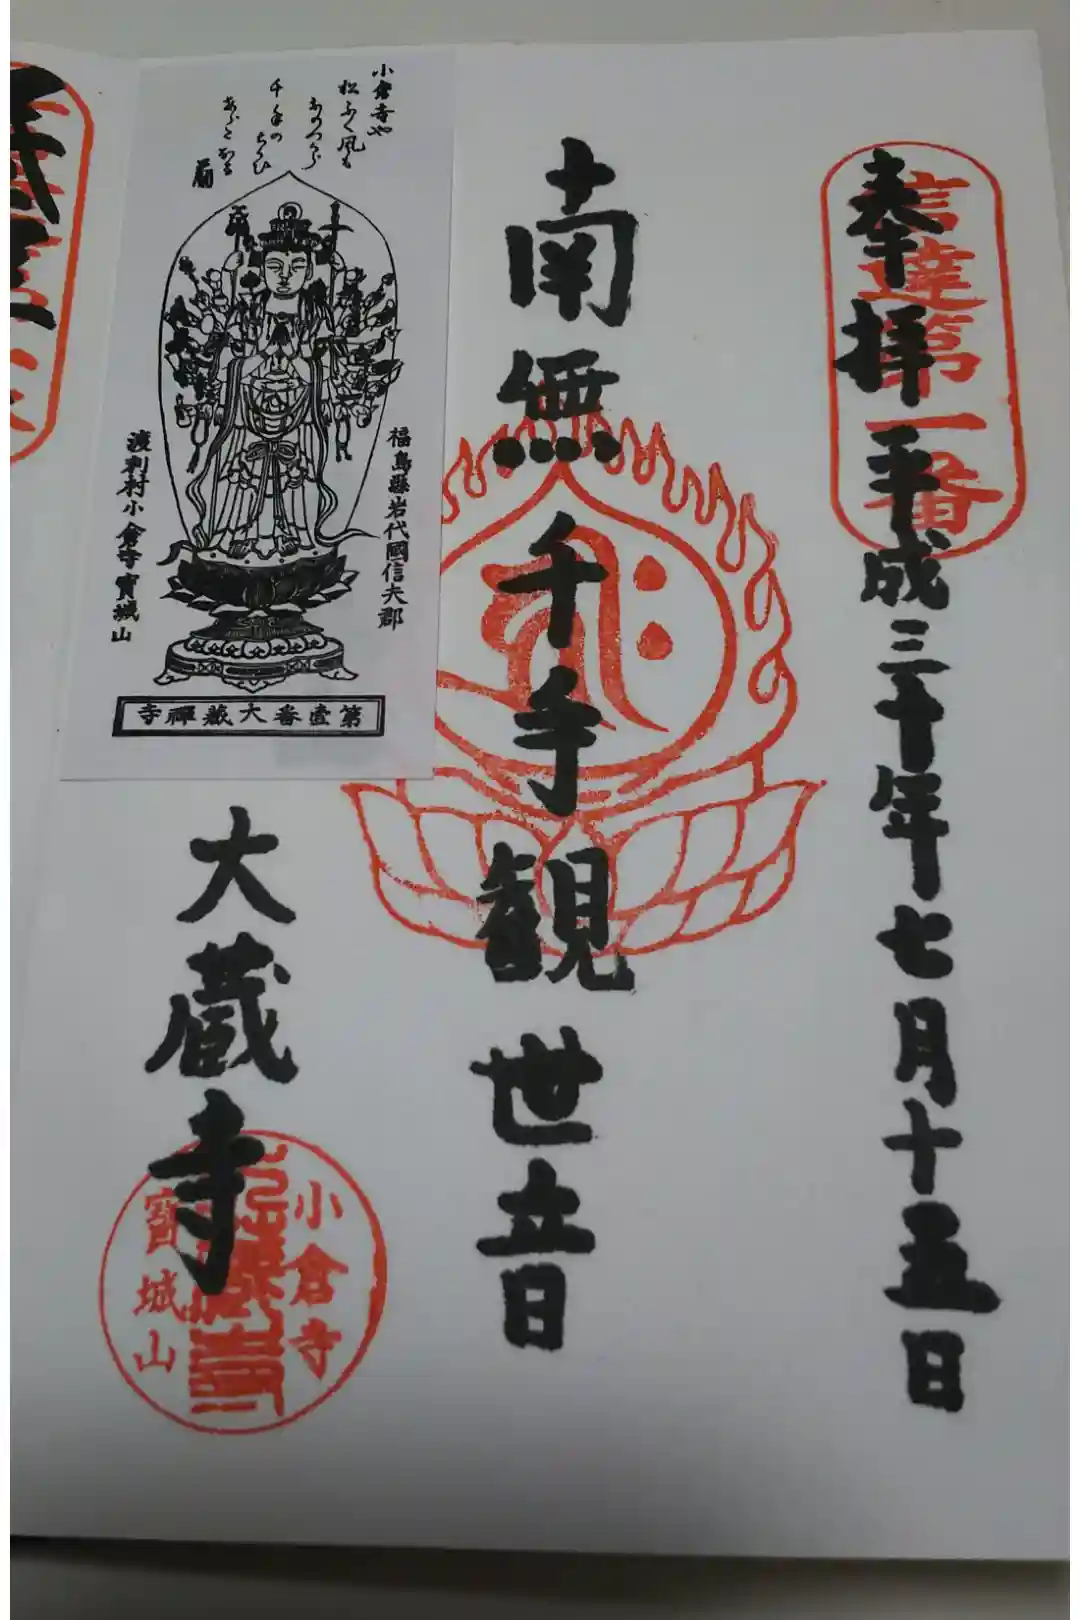 奉拝 平成三十年七月十五日
信達第一番
南無千手観世音
大蔵寺
小倉寺
寳城山
小倉寺や
松ふく風も
おのつから
千手の
ちかひ
福島縣岩代國信夫郡
渡利村小倉寺寳城山
第壹番大蔵禪寺